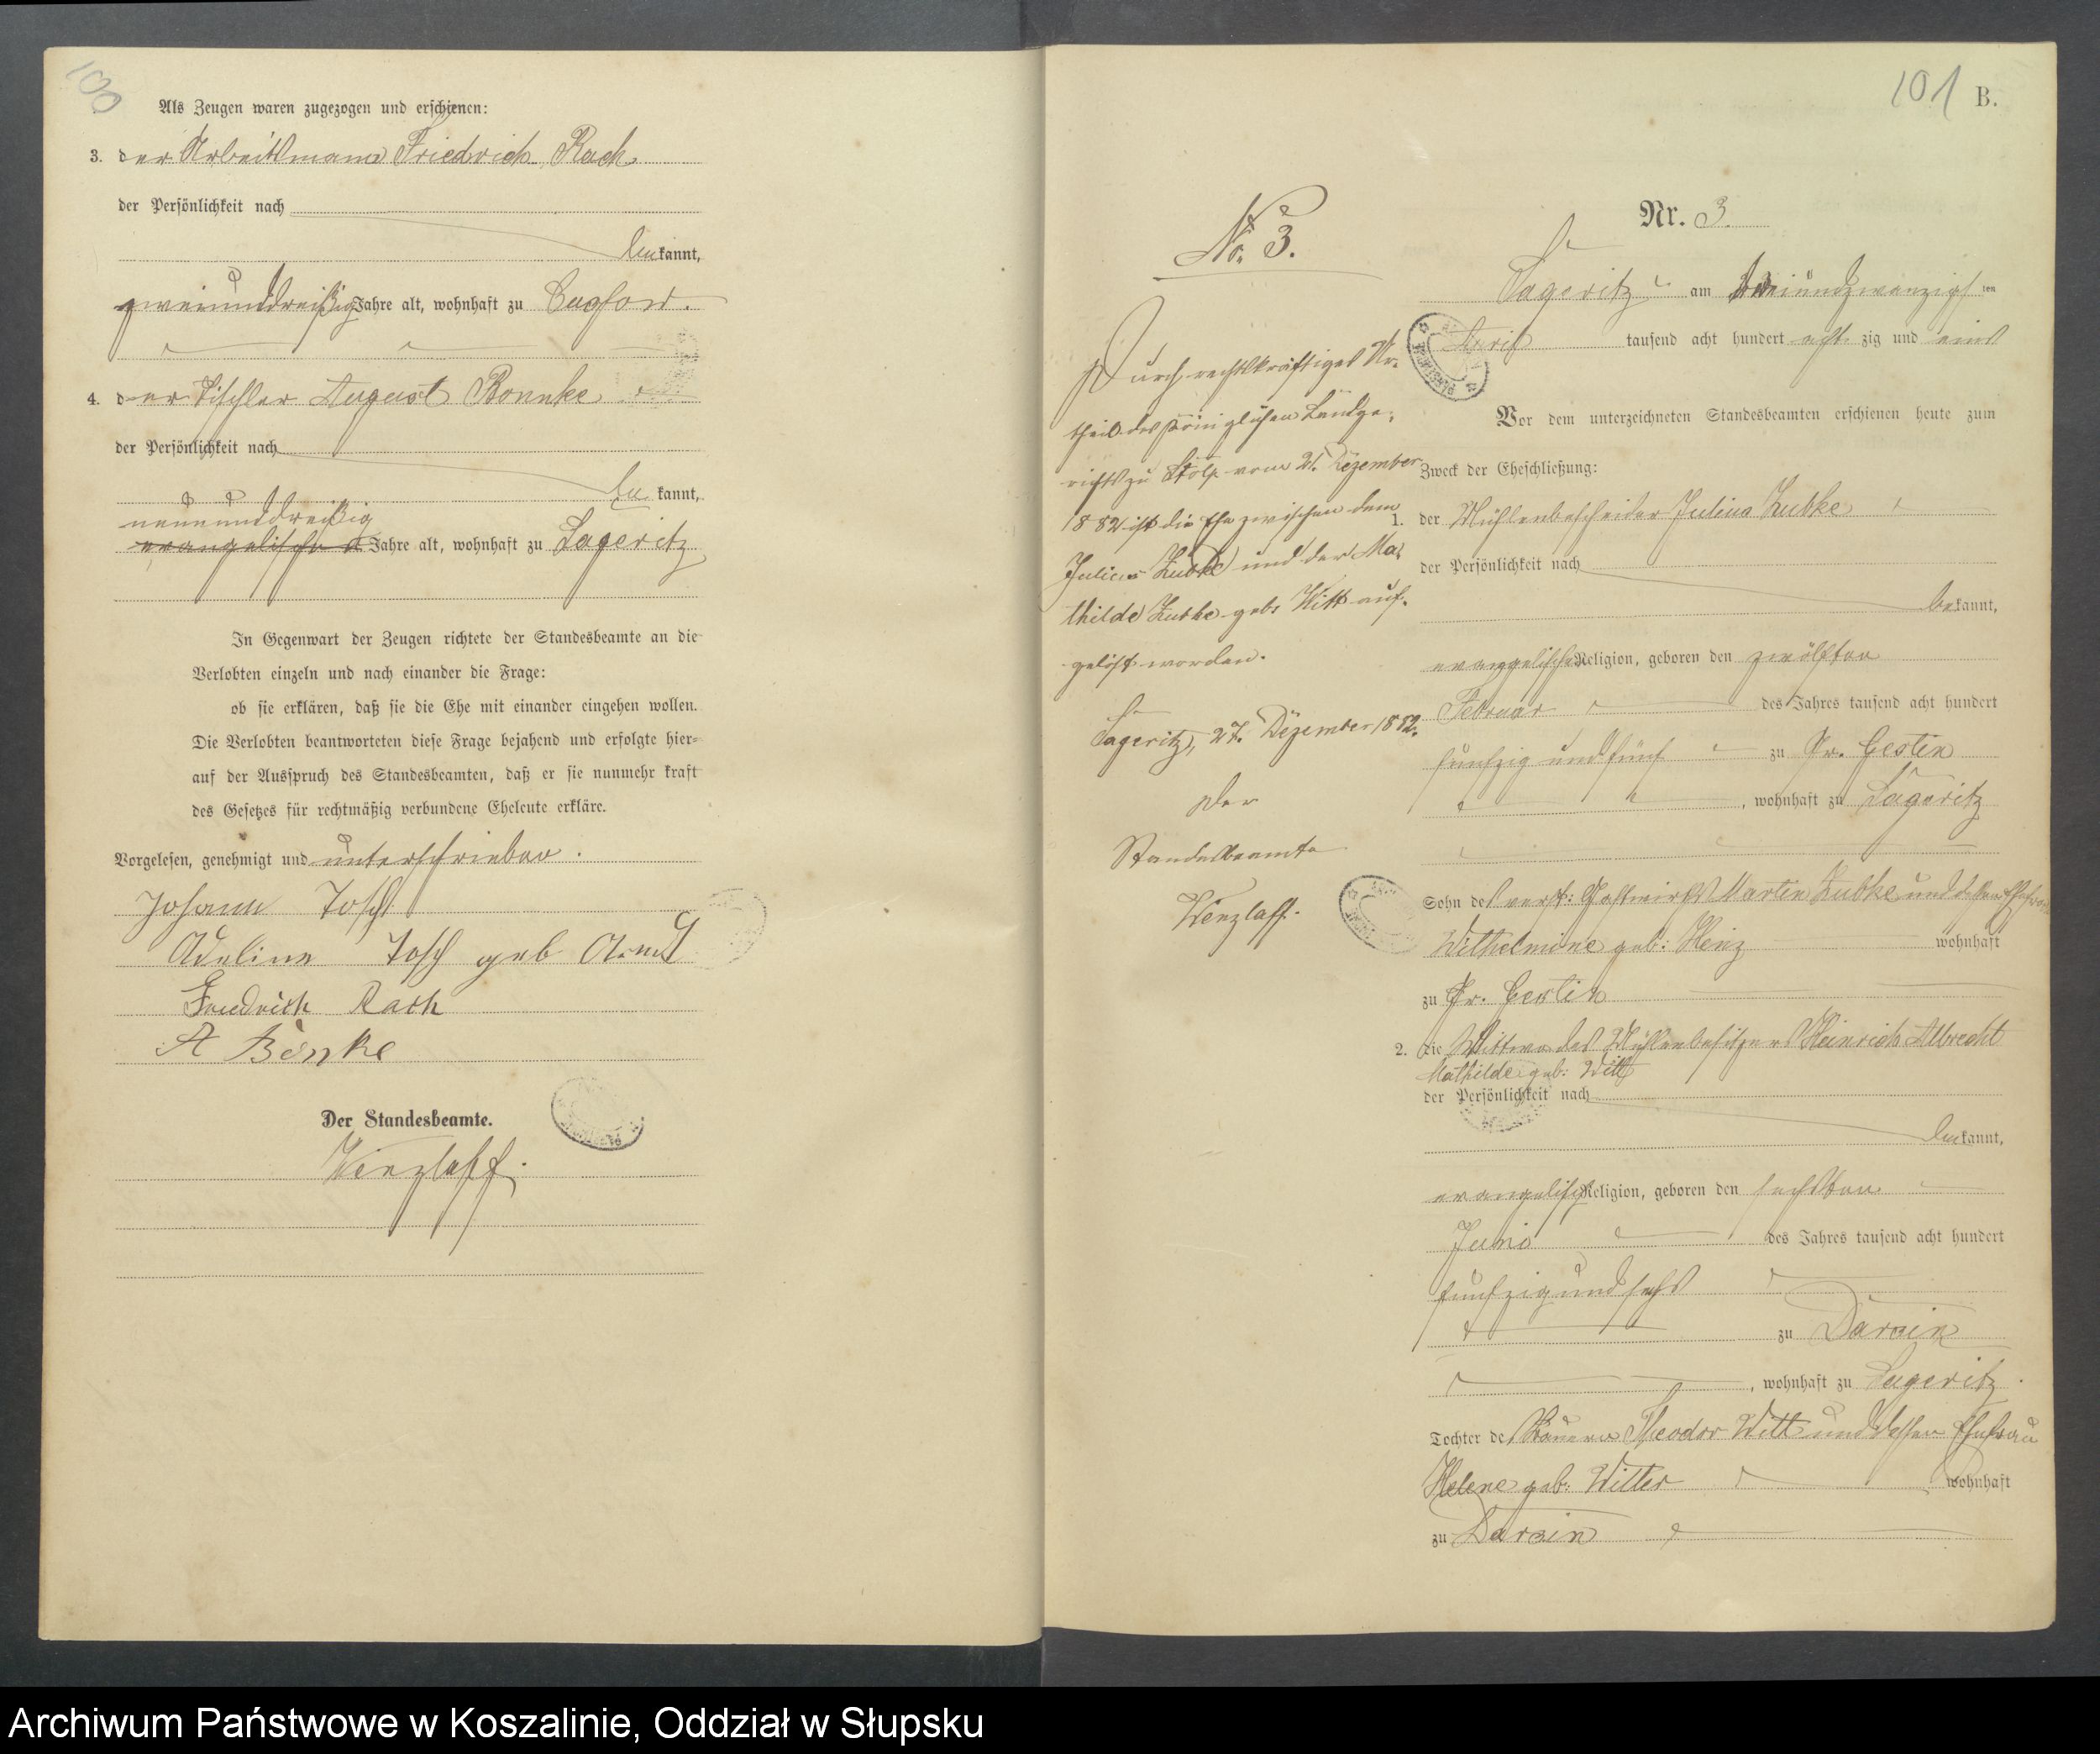 100
Als Zeugen waren zugezogen und erschienen:
3. der Arbeitsmann Friedrich Rach
der Persönlichkeit nach
bekannt,
zweiunddreißig Jahre alt, wohnhaft zu
4. der Tischler August Bonnke
der Persönlichkeit nach
be kannt,
neununddreißig
evangelische Jahre alt, wohnhaft zu Sageritz
In Gegenwart der Zeugen richtete der Standesbeamte an die
Verlobten einzeln und nach einander die Frage:
ob sie erklären, daß sie die Ehe mit einander eingehen wollen.
Die Verlobten beantworteten diese Frage bejahend und erfolgte hier=
auf der Ausspruch des Standesbeamten, daß er sie nunmehr kraft
des Gesetzes für rechtmäßig verbundene Eheleute erkläre.
Vorgelesen, genehmigt und unterschrieben.
Johann Tosch
Adeline Tosch geb Arndt
Friedrich Rach
A Bönke
Der Standesbeamte.
Wenzlaff.
101 B.
Nr. 3.
Sageritz am zwanzigsten
tausend acht hundert acht zig und eins
Vor dem unterzeichneten Standesbeamten erschienen heute zum
Zweck der Eheschließung:
1. der Mühlenbescheider Julius Zubke
der Persönlichkeit nach
bekannt,
evangelischer Religion, geboren den zwölften
Februar des Jahres tausend acht hundert
fünfzig und fünf zu Gr. Gestin
, wohnhaft zu Sageritz
Sohn des verst: Gastwirths Martin Zubke und dessen Ehefrau
Wilhelmine geb: Henz wohnhaft
zu Gr. Gestin
2. die Wittwe des Mühlenbesitzers Heinrich Albrecht
Mathilde geb: Witt
der Persönlichkeit nach
bekannt,
evangelisch Religion, geboren den sechsten
Juni des Jahres tausend acht hundert
fünfzig und sechs
zu Darsin
, wohnhaft zu Sageritz.
Tochter des Bauern Theodor Witt und dessen Ehefrau
Helene geb: Witter wohnhaft
zu Darsin
No. 3.
Durch rechtskräftiges Ur-
theil des Königlichen Landge-
richts zu Stolp vom 21. Dezember
1882 ist die Ehe zwischen dem
Julius Zubke und der Ma-
thilde Zubke geb: Witt auf-
gelöst worden.
Sageritz, 27. Dezember 1882.
Der
Standesbeamte
Wenzlaff.
Archiwum Państwowe w Koszalinie, Oddział w Słupsku